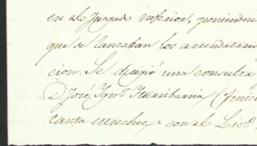 en el Juzgado inferior, poniendo
que se llamaban los arrendatari
cion. Se dirigió una consulta
D. José Ign.º Iturribarria
tanta con el Lic.º